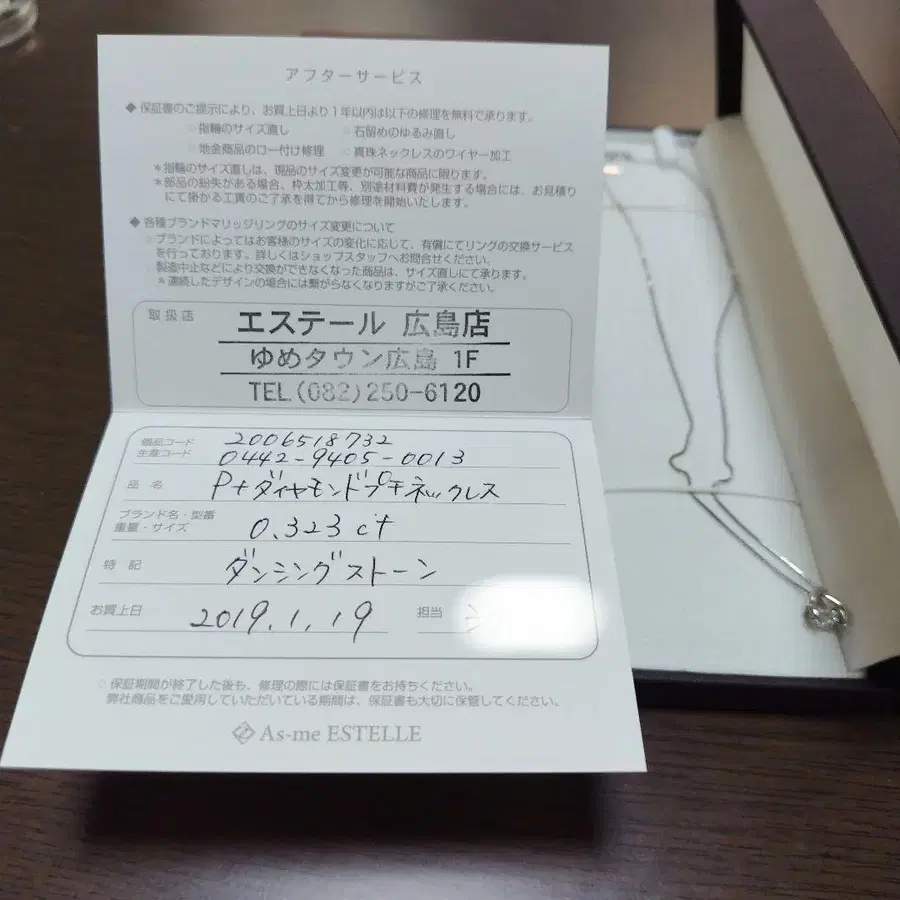 アフターサービス
◆ 保証書のご提示により、お買上日より1年以内は以下の修理を無料で承ります。
○指輪のサイズ直し ○石留めのゆるみ直し
○地金商品のロー付け修理 ○真珠ネックレスのワイヤー加工
＊指輪のサイズ直しは、現品のサイズ変更が可能な商品に限ります。
＊部品の紛失がある場合、枠太加工等、別途材料費が発生する場合には、お見積り
にて掛かる工賃のご了承を得てから修理を開始いたします。
◆ 各種ブランドマリッジリングのサイズ変更について
○ブランドによってはお客様のサイズの変化に応じて、有償にてリングの交換サービス
を行っております。詳しくはショップスタッフへお問合せください。
○製造中止などにより交換ができなくなった商品は、サイズ直しにて承ります。
＊連続したデザインの場合には繋がらなくなりますがご了承ください。
取扱店
エステール 広島店
ゆめタウン広島 1F
TEL(082)250-6120
個品コード 2006518732
生産コード 0442-9405-0013
品名 Ptダイヤモンドプチネックレス
ブランド名・型番
重量・サイズ 0.323ct
特記 ダンシングストーン
お買上日 2019.1.19 担当
○保証期間が終了した後も、修理の際には保証書をお持ちください。
弊社商品をご愛用していただいている期間は、保証書も大切に保管してください。
As-me ESTELLE